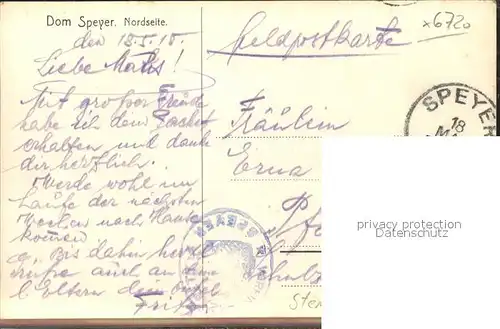 Dom Speyer. Nordseite.
x6720
den 18.5.18.
Feldpostkarte
Liebe
Mit großer Freude
habe ich dein Packet
erhalten und danke
dir herzlich.
Werde wohl im
Laufe der nächsten
Wochen nach Hause
kommen
Bis dahin herzl
Grüße auch an deine
l. Eltern dein
Fritz
Fräulein
Erna
SPEYER
18
privacy protection
Datenschutz
SPEYER